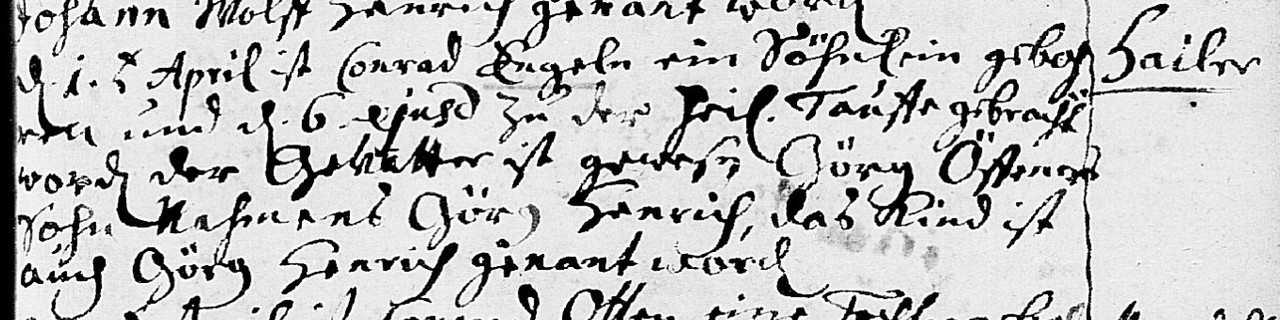 Johann Wolff Henrich genant word
d. 1. t April ist Conrad Engeln ein Söhnlein geboh Hailer
ren und d. 6 ejusd zu der heil. Tauffe gebracht
word der Gevatter ist gewesen Görg Öffeners
Sohn Nahmens Görg Henrich, das Kind ist
auch Görg Henrich genant word
April ist Conrad eine